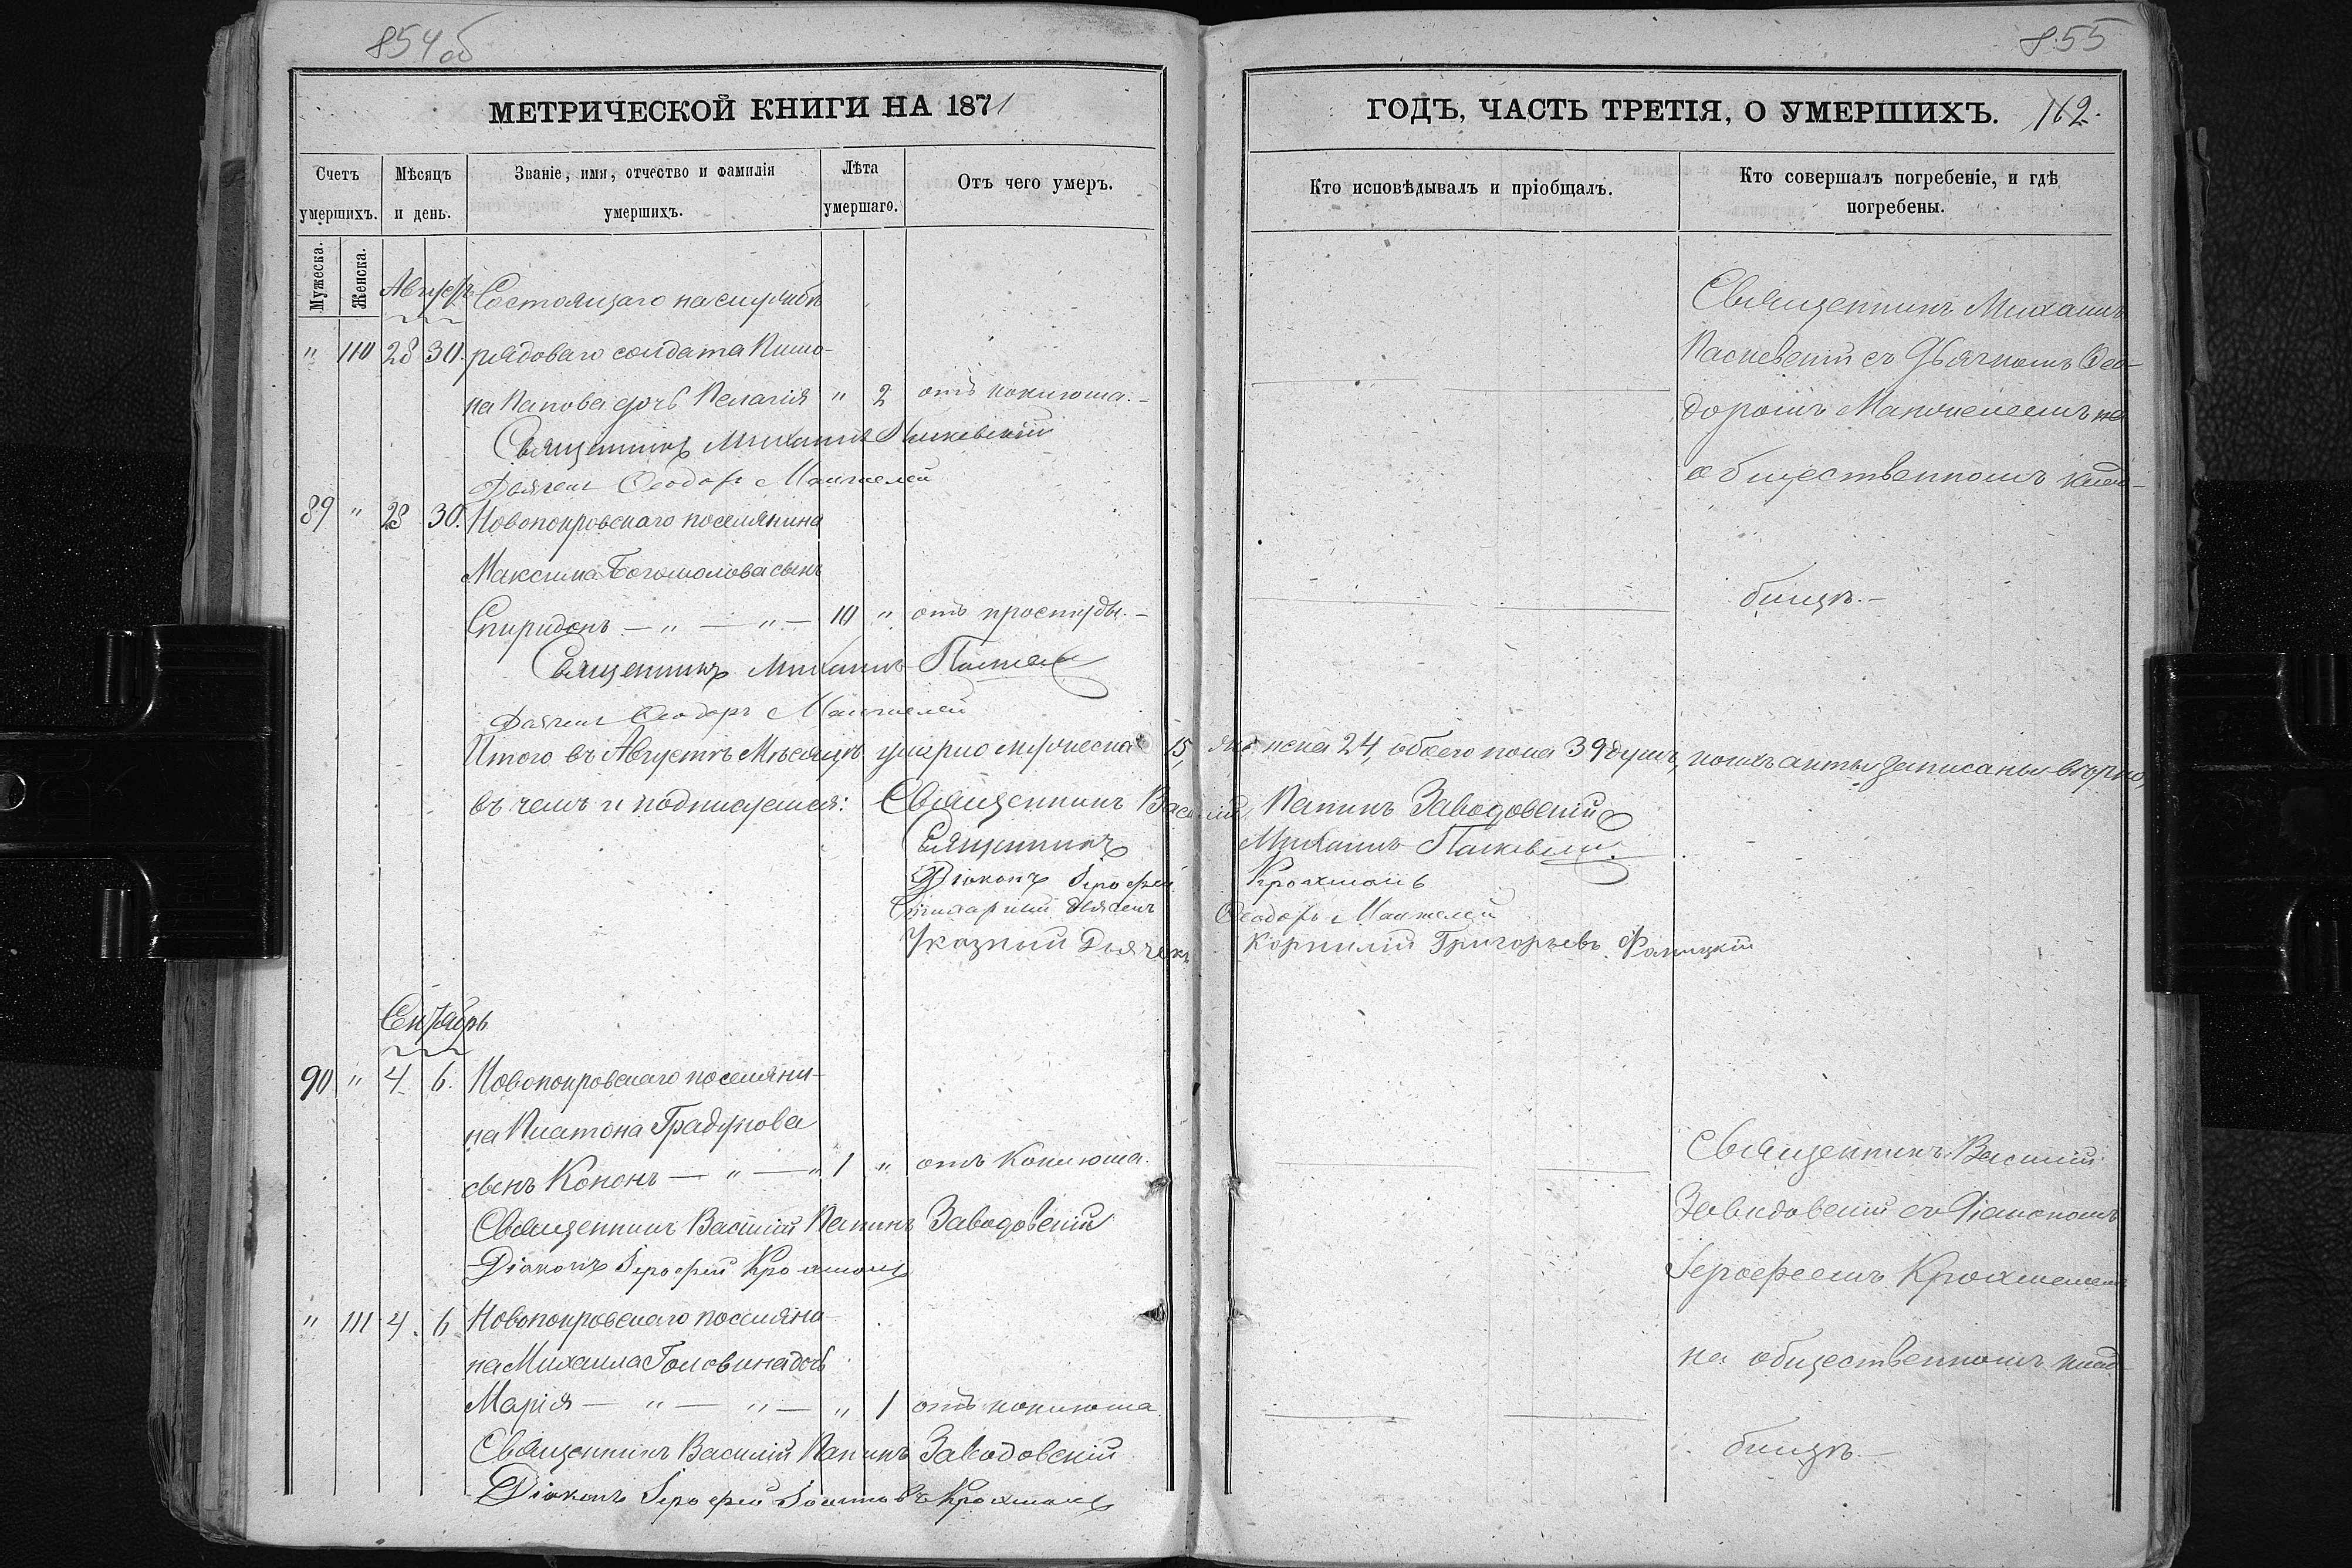 854 об
МЕТРИЧЕСКОЙ КНИГИ НА 1871
Счетъ умершихъ.
Мужеска.
Женска.
Мѣсяцъ и день.
Званіе, имя, отчество и фамилія умершихъ.
Лѣта умершаго.
Отъ чего умеръ.
Августъ
Состоящаго на службѣ
" 110 28 30. рядоваго солдата
на Попова дочь Пелагія " 2 отъ коклюша.-
Священникъ Михаилъ Паскевскій
Дьячекъ Ѳеодоръ
89 " 28 30. Новопокровскаго поселянина
Максима Богомолова сынъ
Спиридонъ — " — " — 10 " отъ простуды.-
Священникъ Михаилъ
Дьячекъ Ѳеодоръ
Итого въ Августѣ Мѣсяцѣ умерло мужеска 15,
въ чемъ и подписуемся: Священникъ Василій
Священникъ
Діаконъ Іероѳей
Дьячекъ
Указный Дьячекъ
Сентябрь
90 " 4 6. Новопокровскаго поселяни-
на Платона Градунова
сынъ Кононъ — " — " 1 " отъ Коклюша.
Священникъ Василій Заводовскій
Діаконъ Іероѳей
" 111 4. 6 Новопокровскаго поселяни-
на Михаила Головина дочь
Марія — " — " — " 1 отъ коклюша
Священникъ Василій Заводовскій
Діаконъ Іероѳей
855
ГОДЪ, ЧАСТЬ ТРЕТІЯ, О УМЕРШИХЪ. 162.
Кто исповѣдывалъ и пріобщалъ.
Кто совершалъ погребеніе, и гдѣ погребены.
Священникъ Михаилъ
Паскевскій съ Дьячкомъ Ѳео-
доромъ на
общественномъ клад-
бищѣ.-
женска 24, обоего пола 39 душъ, коихъ акты записаны вѣрно,
Заводовскій
Михаилъ
Ѳеодоръ
Корнилій Григорьевъ
Священникъ Василій
Заводовскій съ Діакономъ
Іероѳеемъ
на общественномъ клад-
бищѣ.-